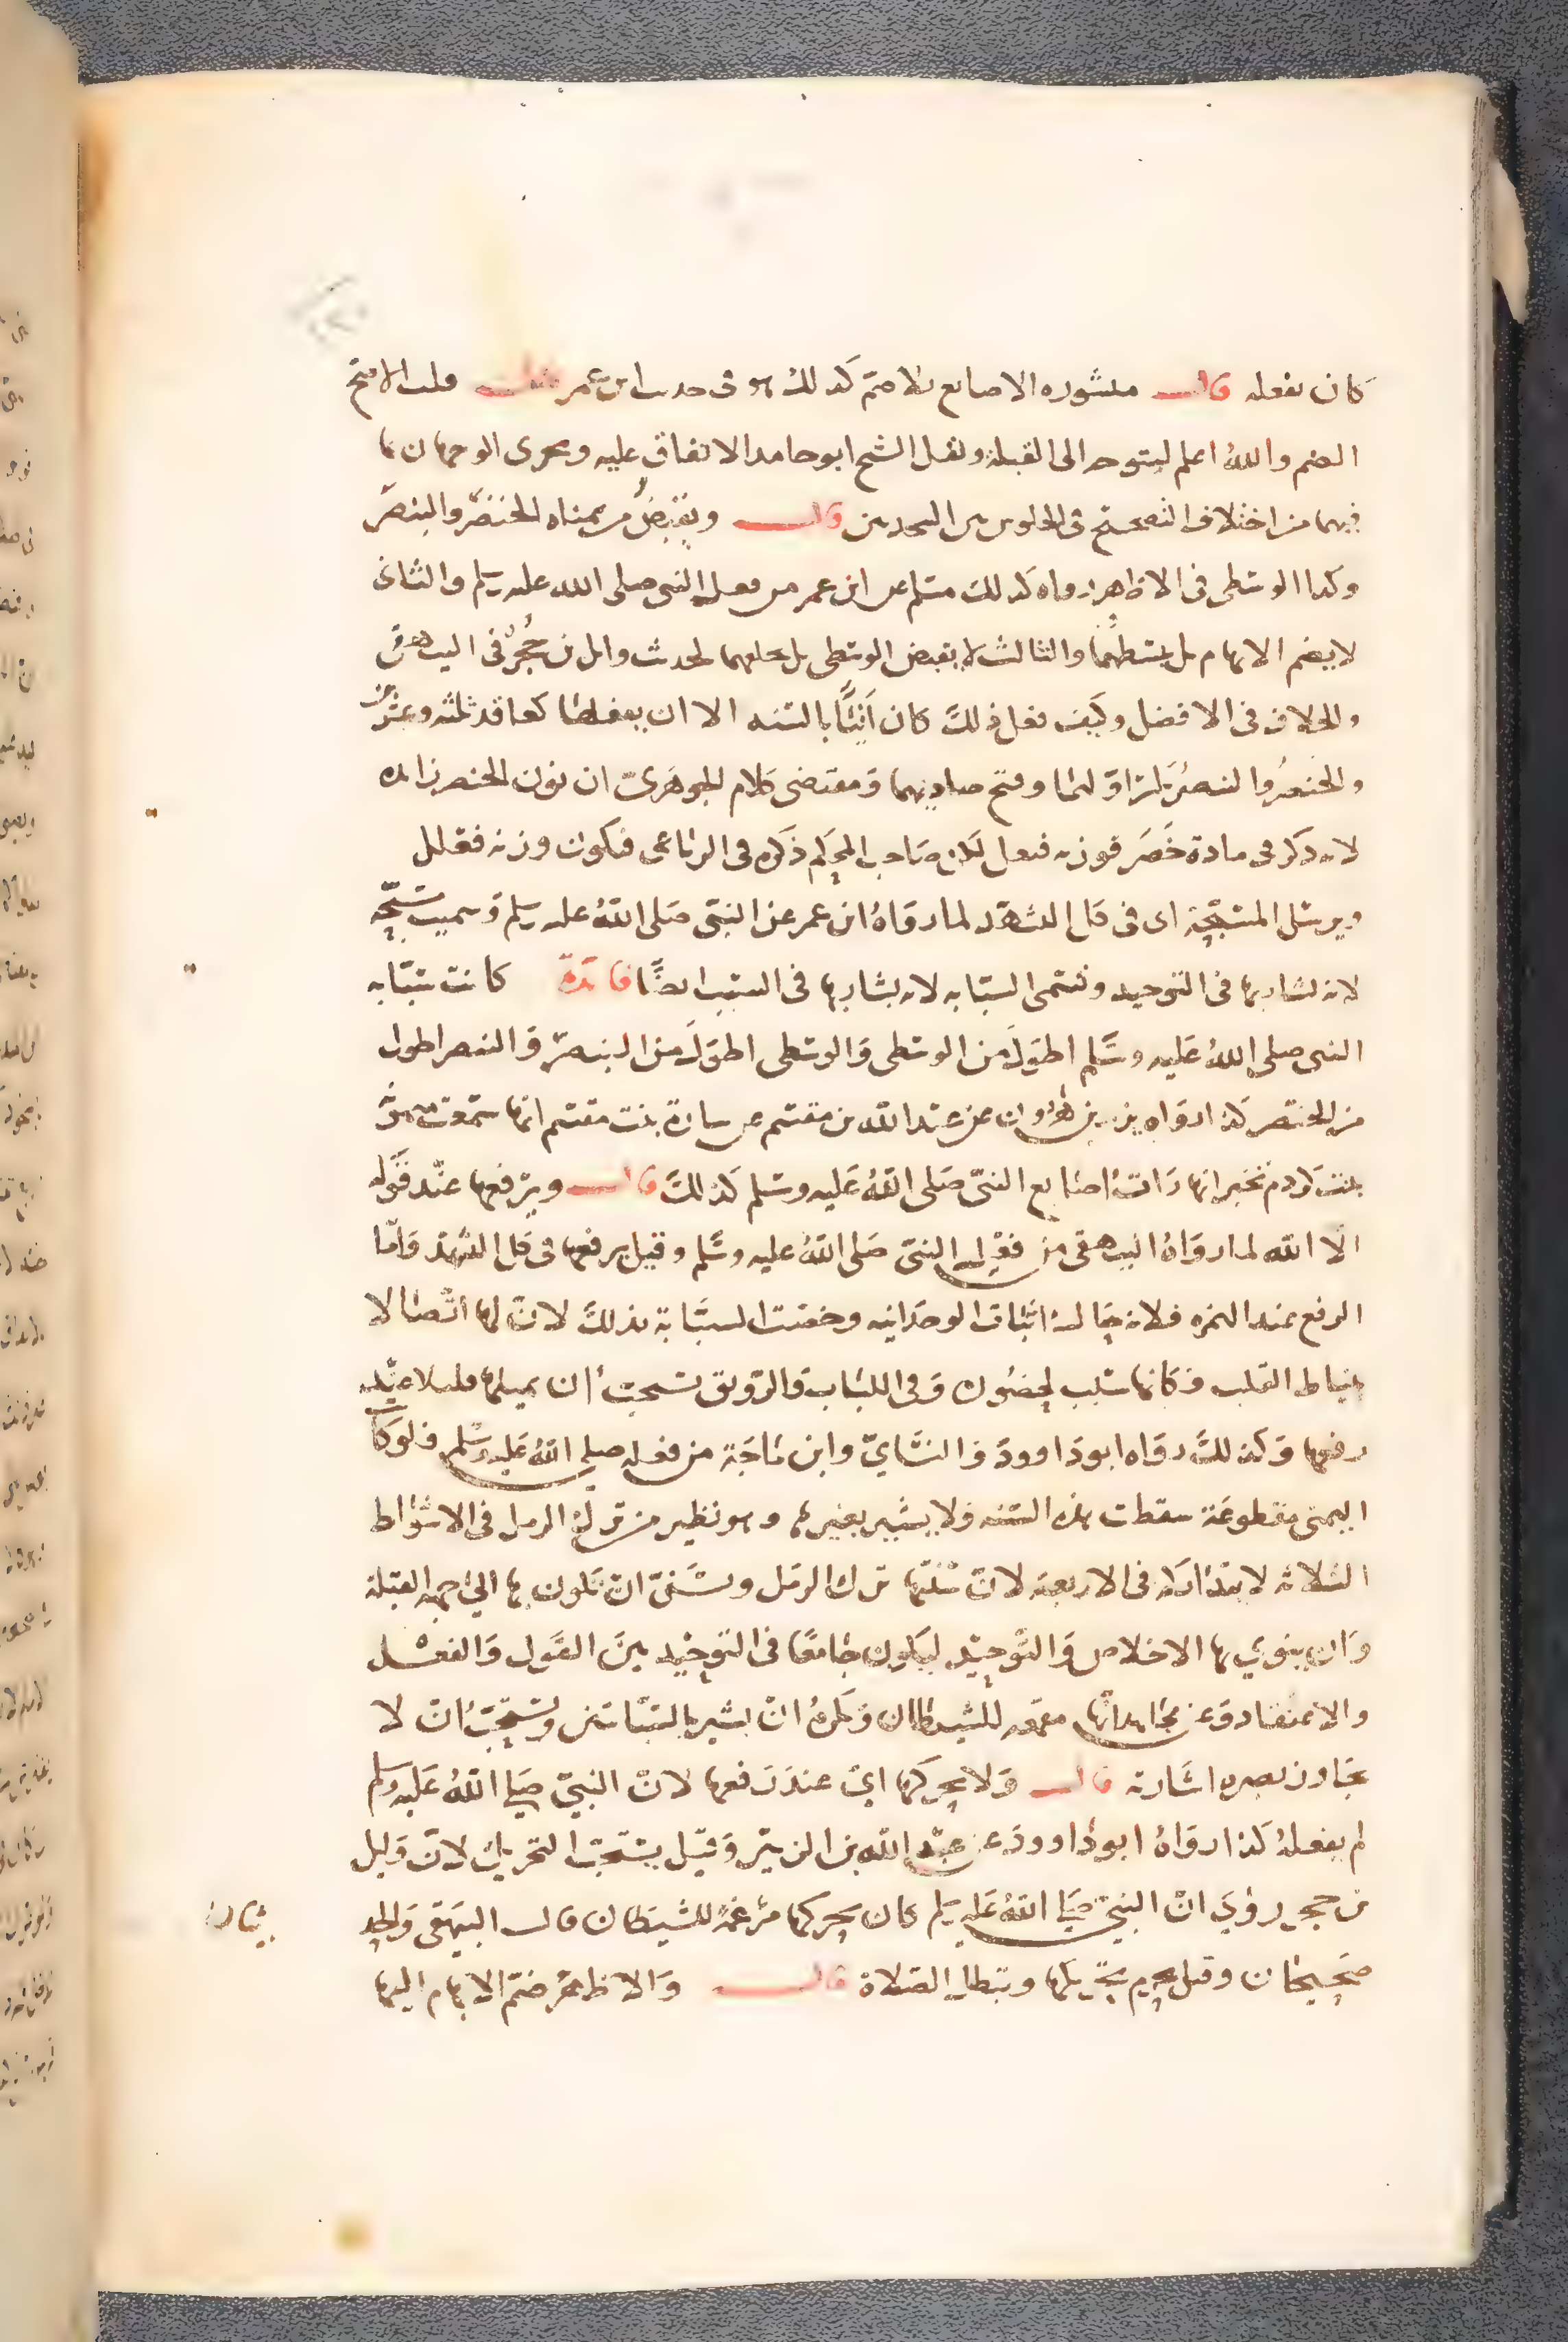 كان يفعله قال منشوره الاصابع بلا ضم كذلك هو فى حديث ابن عمر قلت الاصح
الضم والله اعلم ليتوجه الى القبلة ونقل الشيخ ابو حامد الاتفاق عليه ويجرى الوجهان
فيهما من اختلاف التصحيح فى الجلوس بين السجدتين قال ويقبض من يمناه الخنصر والبنصر
وكذا الوسطى فى الاظهر رواه كذلك مسلم عن ابن عمر من فعل النبى صلى الله عليه وسلم والثانى
لا يضم الابهام بل يبسطهما والثالث لا يقبض الوسطى بل يحلقهما لحديث وائل بن حجر فى البيهقى
والخلاف فى الافضل وكيف فعل ذلك كان آتيًا بالسنه الا ان كعاقد ثلثه وعشرين
والخنصر والبنصر بكسر اولهما وفتح صاديهما ومقتضى كلام الجوهرى ان نون الخنصر زائده
لانه ذكره فى مادة خَصَر فوزنه فنعل لكن صاحب المحكم ذكره فى الرباعى فيكون وزنه فعلل
ويرسل المسبّحة اى فى كل التشهد لما رواهُ ابن عمر عن النبى صلى اللهُ عليه وسلم وسميت مسبّحة
لانه يشار بها فى التوحيد وتسمى السبّابه لانه يشار بها فى السبّ ايضًا فائدة كانت سبّابه
النبى صلى اللهُ عليه وسلم اطول من الوسطى والوسطى اطول من البنصر والبنصر اطول
من الخنصر كذا رواه يزيد بن هرون عن عبد الله بن مقسم عن سارة بنت مقسم انها سمعت ميمونة
بنت كردم تخبر انها رات اصابع النبىّ صلى اللهُ عليه وسلم كذلك قال ويرفعها عند قوله
الا الله لما رواهُ البيهقى من فعله النبىّ صلى اللهُ عليه وسلم وقيل يرفعها فى كل التشهد وامّا
الرفع عند الهمزه فلانه حالة اثبات الوحدانيه وخصت السبّابة بذلك لان لها اتّصالا
بنياط القلب فكانها سبب لحضوره وفى اللباب والرونق يستحبّ ان يميلها قليلا عند
رفعها وكذلك رواه ابو داوود والنسائىّ وابن ماجة من فعله صلى اللهُ عليه وسلم فلو كا
اليمنى مقطوعة سقطت هذه السنه ولا يشير بغيرها وهو نظير من ترك الرمل فى الاشواط
الثلاثه لا يتداركه فى الاربعة لان سُنّتها ترك الرمل ويسَنّ ان تكون بها الى جهه القبلة
وان ينوي بها الاخلاص والتّوحيد ليكون جامعًا فى التوحيد بين القول والفعل
والاعتقاد وعن مجاهد انّها مقمعه للشيطان ويكرهُ ان يشير بالسبّابتين ويستحبّ ان لا
يجاوز بصره اشارته قال ولا يحركها اى عند رفعها لان النبىّ صلى اللهُ عليه وسلم
لم يفعلهُ كذا رواهُ ابو داوود عن عبد الله بن الزبير وقيل يستحبّ التحريك لان وايل
بن حجر روَي ان النبىّ صلى اللهُ عليه وسلم كان يحركها مرغمة للشيطان قال البيهقى والحديثان
صحيحان وقيل يحرم تحريكها وتبطل الصلاة قال والاظهر ضمّ الابهام اليها